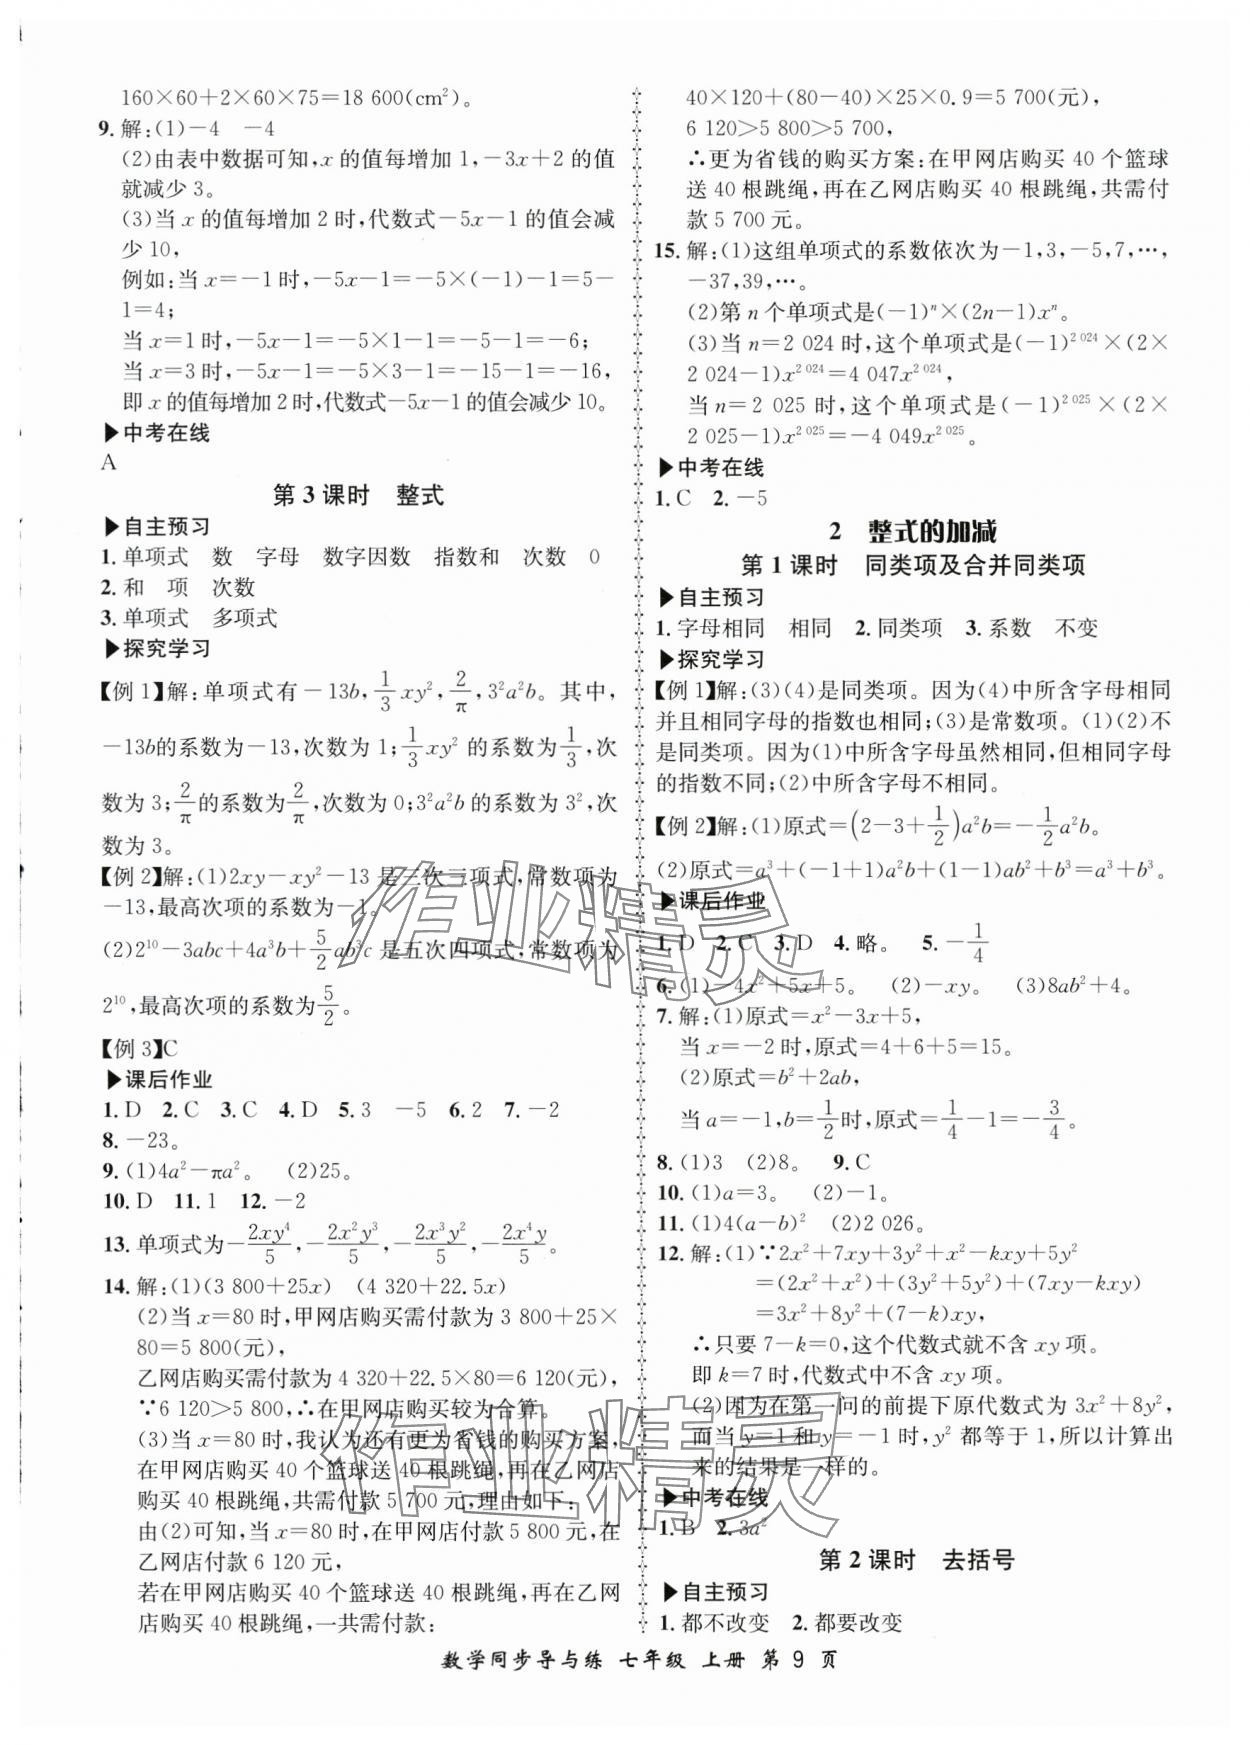 160×60+2×60×75=18 600(cm²)。
9. 解:(1)-4　-4
(2)由表中数据可知,x 的值每增加 1,-3x+2 的值
就减少 3。
(3)当 x 的值每增加 2 时,代数式-5x-1 的值会减
少 10,
例如:当 x=-1 时,-5x-1=-5×(-1)-1=5-
1=4;
当 x=1 时,-5x-1=-5×1-1=-5-1=-6;
当 x=3 时,-5x-1=-5×3-1=-15-1=-16,
即 x 的值每增加 2 时,代数式-5x-1 的值会减少 10。
▶中考在线
A
第 3 课时　整式
▶自主预习
1. 单项式　数　字母　数字因数　指数和　次数　0
2. 和　项　次数
3. 单项式　多项式
▶探究学习
【例 1】解:单项式有-13b,1/3 xy²,2/π,3²a²b。其中,
-13b的系数为-13,次数为 1;1/3 xy² 的系数为1/3,次
数为 3;2/π的系数为2/π,次数为 0;3²a²b 的系数为 3²,次
数为 3。
【例 2】解:(1)2xy-xy²-13 是三次三项式,常数项为
-13,最高次项的系数为-1。
(2)2¹⁰-3abc+4a³b+5/2 ab³c 是五次四项式,常数项为
2¹⁰,最高次项的系数为5/2。
【例 3】C
▶课后作业
1. D　2. C　3. C　4. D　5. 3　-5　6. 2　7. -2
8. -23。
9. (1)4a²-πa²。　(2)25。
10. D　11. 1　12. -2
13. 单项式为-2xy⁴/5,-2x²y³/5,-2x³y²/5,-2x⁴y/5。
14. 解:(1)(3 800+25x)　(4 320+22.5x)
(2)当 x=80 时,甲网店购买需付款为 3 800+25×
80=5 800(元),
乙网店购买需付款为 4 320+22.5×80=6 120(元),
∵6 120>5 800,∴在甲网店购买较为合算。
(3)当 x=80 时,我认为还有更为省钱的购买方案,
在甲网店购买 40 个篮球送 40 根跳绳,再在乙网店
购买 40 根跳绳,共需付款 5 700 元,理由如下:
由(2)可知,当 x=80 时,在甲网店付款 5 800 元,在
乙网店付款 6 120 元,
若在甲网店购买 40 个篮球送 40 根跳绳,再在乙网
店购买 40 根跳绳,一共需付款:
40×120+(80-40)×25×0.9=5 700(元),
6 120>5 800>5 700,
∴更为省钱的购买方案:在甲网店购买 40 个篮球
送 40 根跳绳,再在乙网店购买 40 根跳绳,共需付
款 5 700 元。
15. 解:(1)这组单项式的系数依次为-1,3,-5,7,…,
-37,39,…。
(2)第 n 个单项式是(-1)ⁿ×(2n-1)xⁿ。
(3)当 n=2 024 时,这个单项式是(-1)^2 024×(2×
2 024-1)x^2 024=4 047x^2 024,
当 n=2 025 时,这个单项式是(-1)^2 025×(2×
2 025-1)x^2 025=-4 049x^2 025。
▶中考在线
1. C　2. -5
2　整式的加减
第 1 课时　同类项及合并同类项
▶自主预习
1. 字母相同　相同　2. 同类项　3. 系数　不变
▶探究学习
【例 1】解:(3)(4)是同类项。因为(4)中所含字母相同
并且相同字母的指数也相同;(3)是常数项。(1)(2)不
是同类项。因为(1)中所含字母虽然相同,但相同字母
的指数不同;(2)中所含字母不相同。
【例 2】解:(1)原式=(2-3+1/2)a²b=-1/2 a²b。
(2)原式=a³+(-1+1)a²b+(1-1)ab²+b³=a³+b³。
▶课后作业
1. D　2. C　3. D　4. 略。　5. -1/4
6. (1)-4x²+5x+5。　(2)-xy。　(3)8ab²+4。
7. 解:(1)原式=x²-3x+5,
当 x=-2 时,原式=4+6+5=15。
(2)原式=b²+2ab,
当 a=-1,b=1/2时,原式=1/4-1=-3/4。
8. (1)3　(2)8。　9. C
10. (1)a=3。　(2)-1。
11. (1)4(a-b)²　(2)2 026。
12. 解:(1)∵2x²+7xy+3y²+x²-kxy+5y²
=(2x²+x²)+(3y²+5y²)+(7xy-kxy)
=3x²+8y²+(7-k)xy,
∴只要 7-k=0,这个代数式就不含 xy 项。
即 k=7 时,代数式中不含 xy 项。
(2)因为在第一问的前提下原代数式为 3x²+8y²,
而当 y=1 和 y=-1 时,y² 都等于 1,所以计算出
来的结果是一样的。
▶中考在线
1. B　2. 3a²
第 2 课时　去括号
▶自主预习
1. 都不改变　2. 都要改变
数学同步导与练 七年级 上册 第 9 页
作业精灵
作业精灵